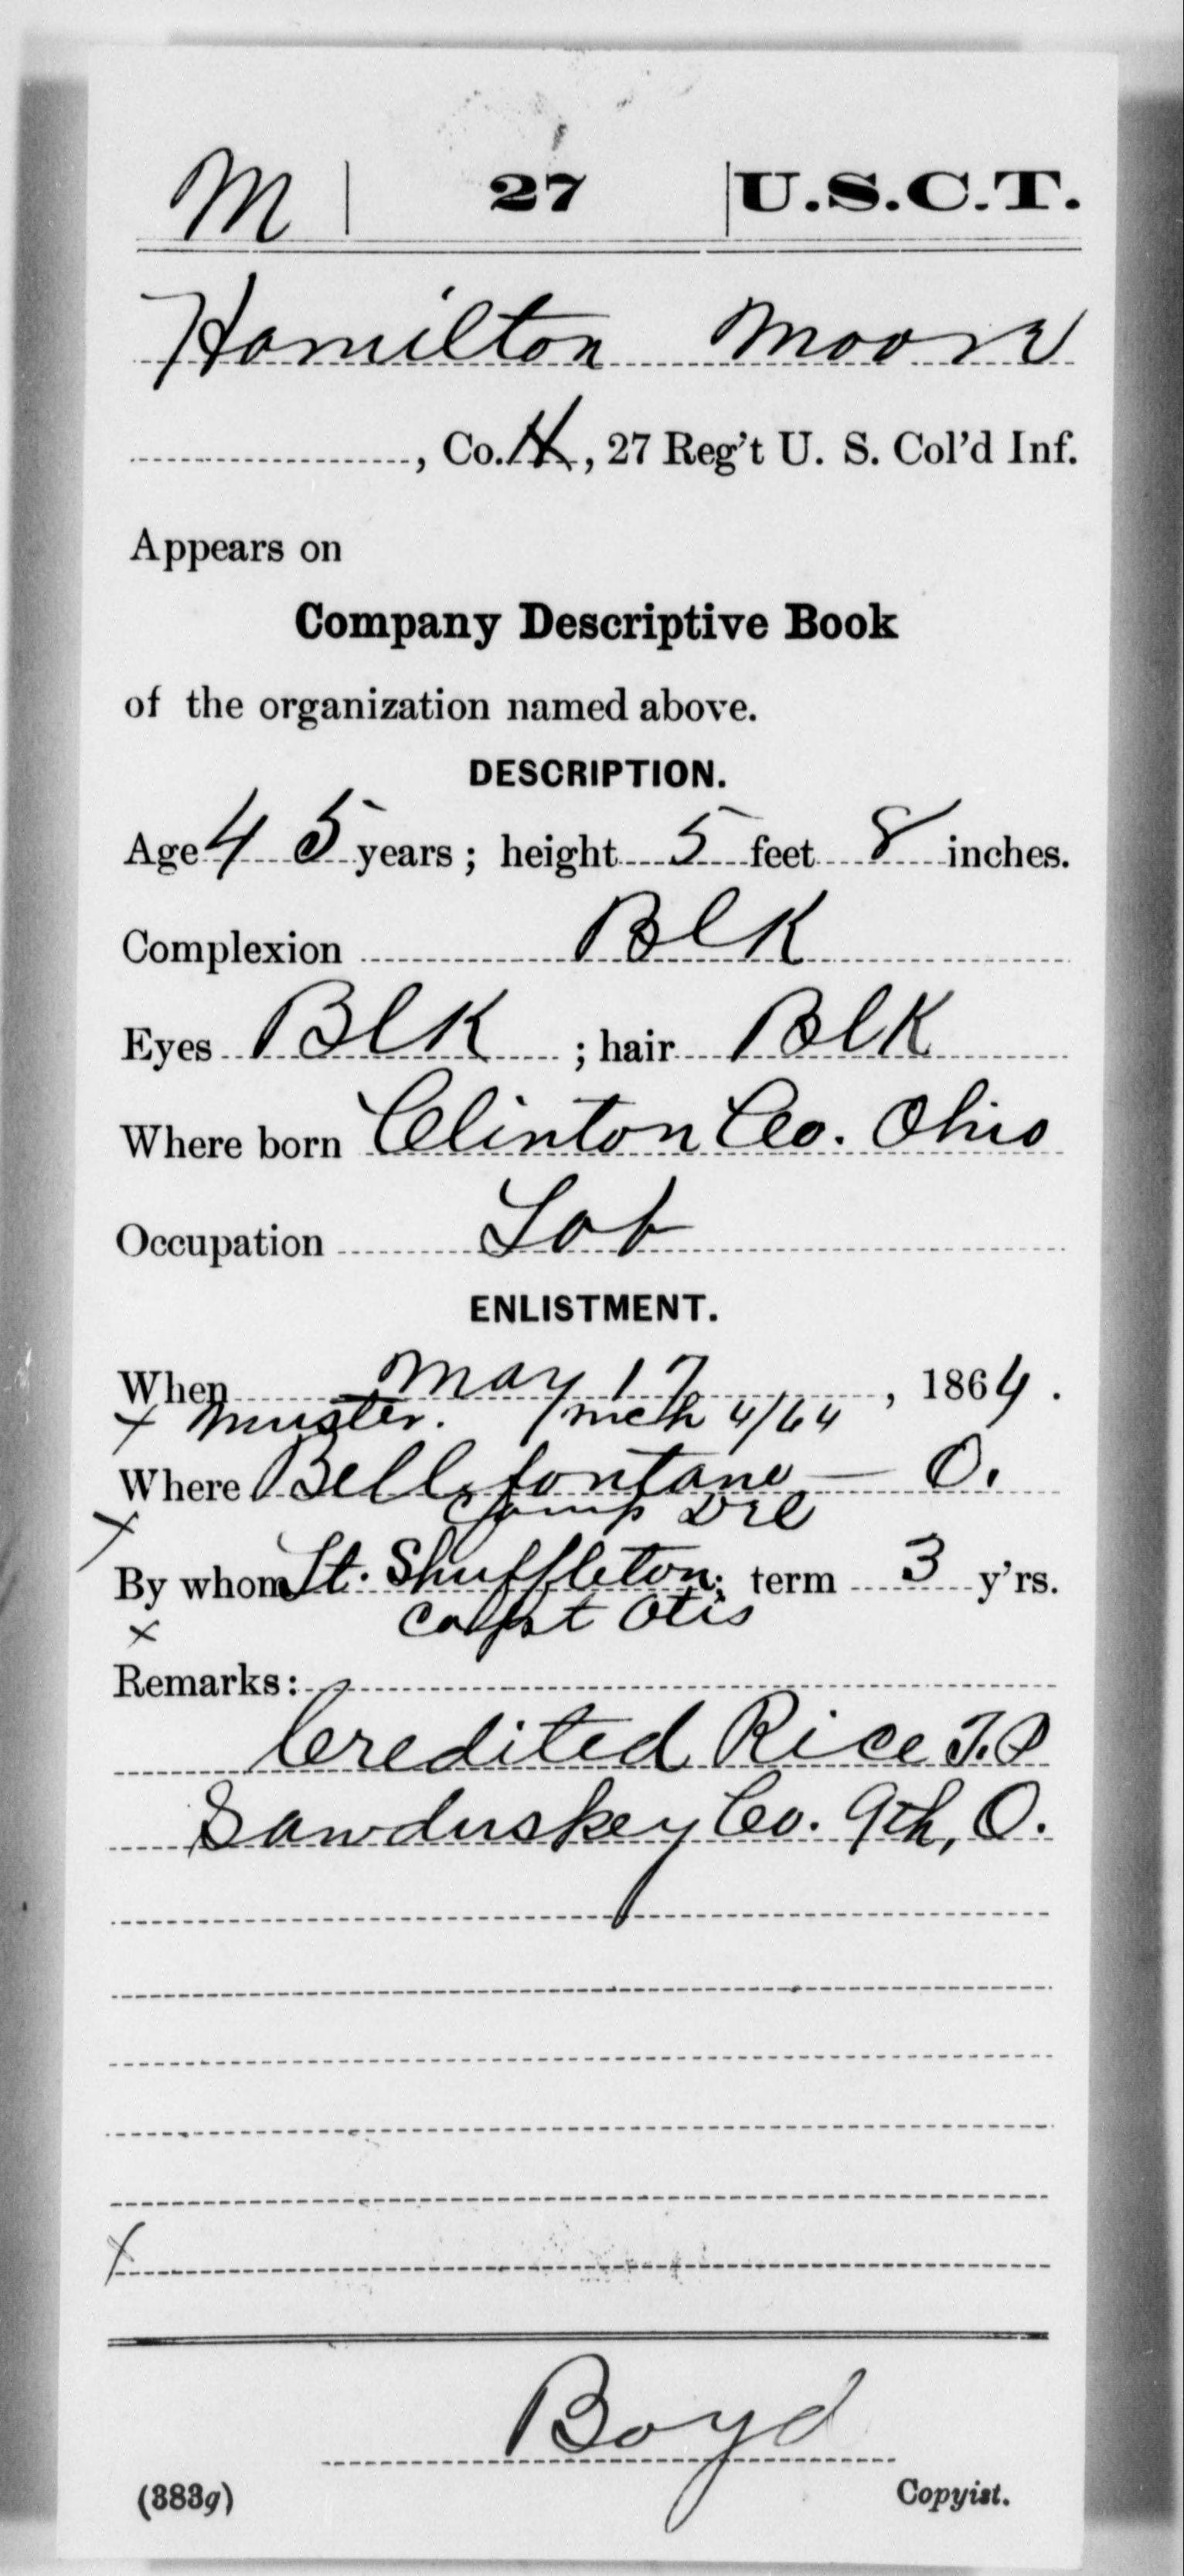 M 27 U.S.C.T.
Hamilton Moore
, Co. H, 27 Reg't U. S. Col'd Inf.
Appears on
Company Descriptive Book
of the organization named above.
DESCRIPTION.
Age 45 years; height 5 feet 8 inches.
Complexion Blk
Eyes Blk ; hair Blk
Where born Clinton Co. Ohio
Occupation Lab
ENLISTMENT.
When May 17, 1864.
x Muster. Mch 4/64
Where Bellefontane — O.
x Camp Del
By whom Lt. Shuffleton; term 3 y'rs.
x Capt Otis
Remarks:
Credited Rice T.P
Sanduskey Co. 9th, O.
x
Boyd
(383g) Copyist.